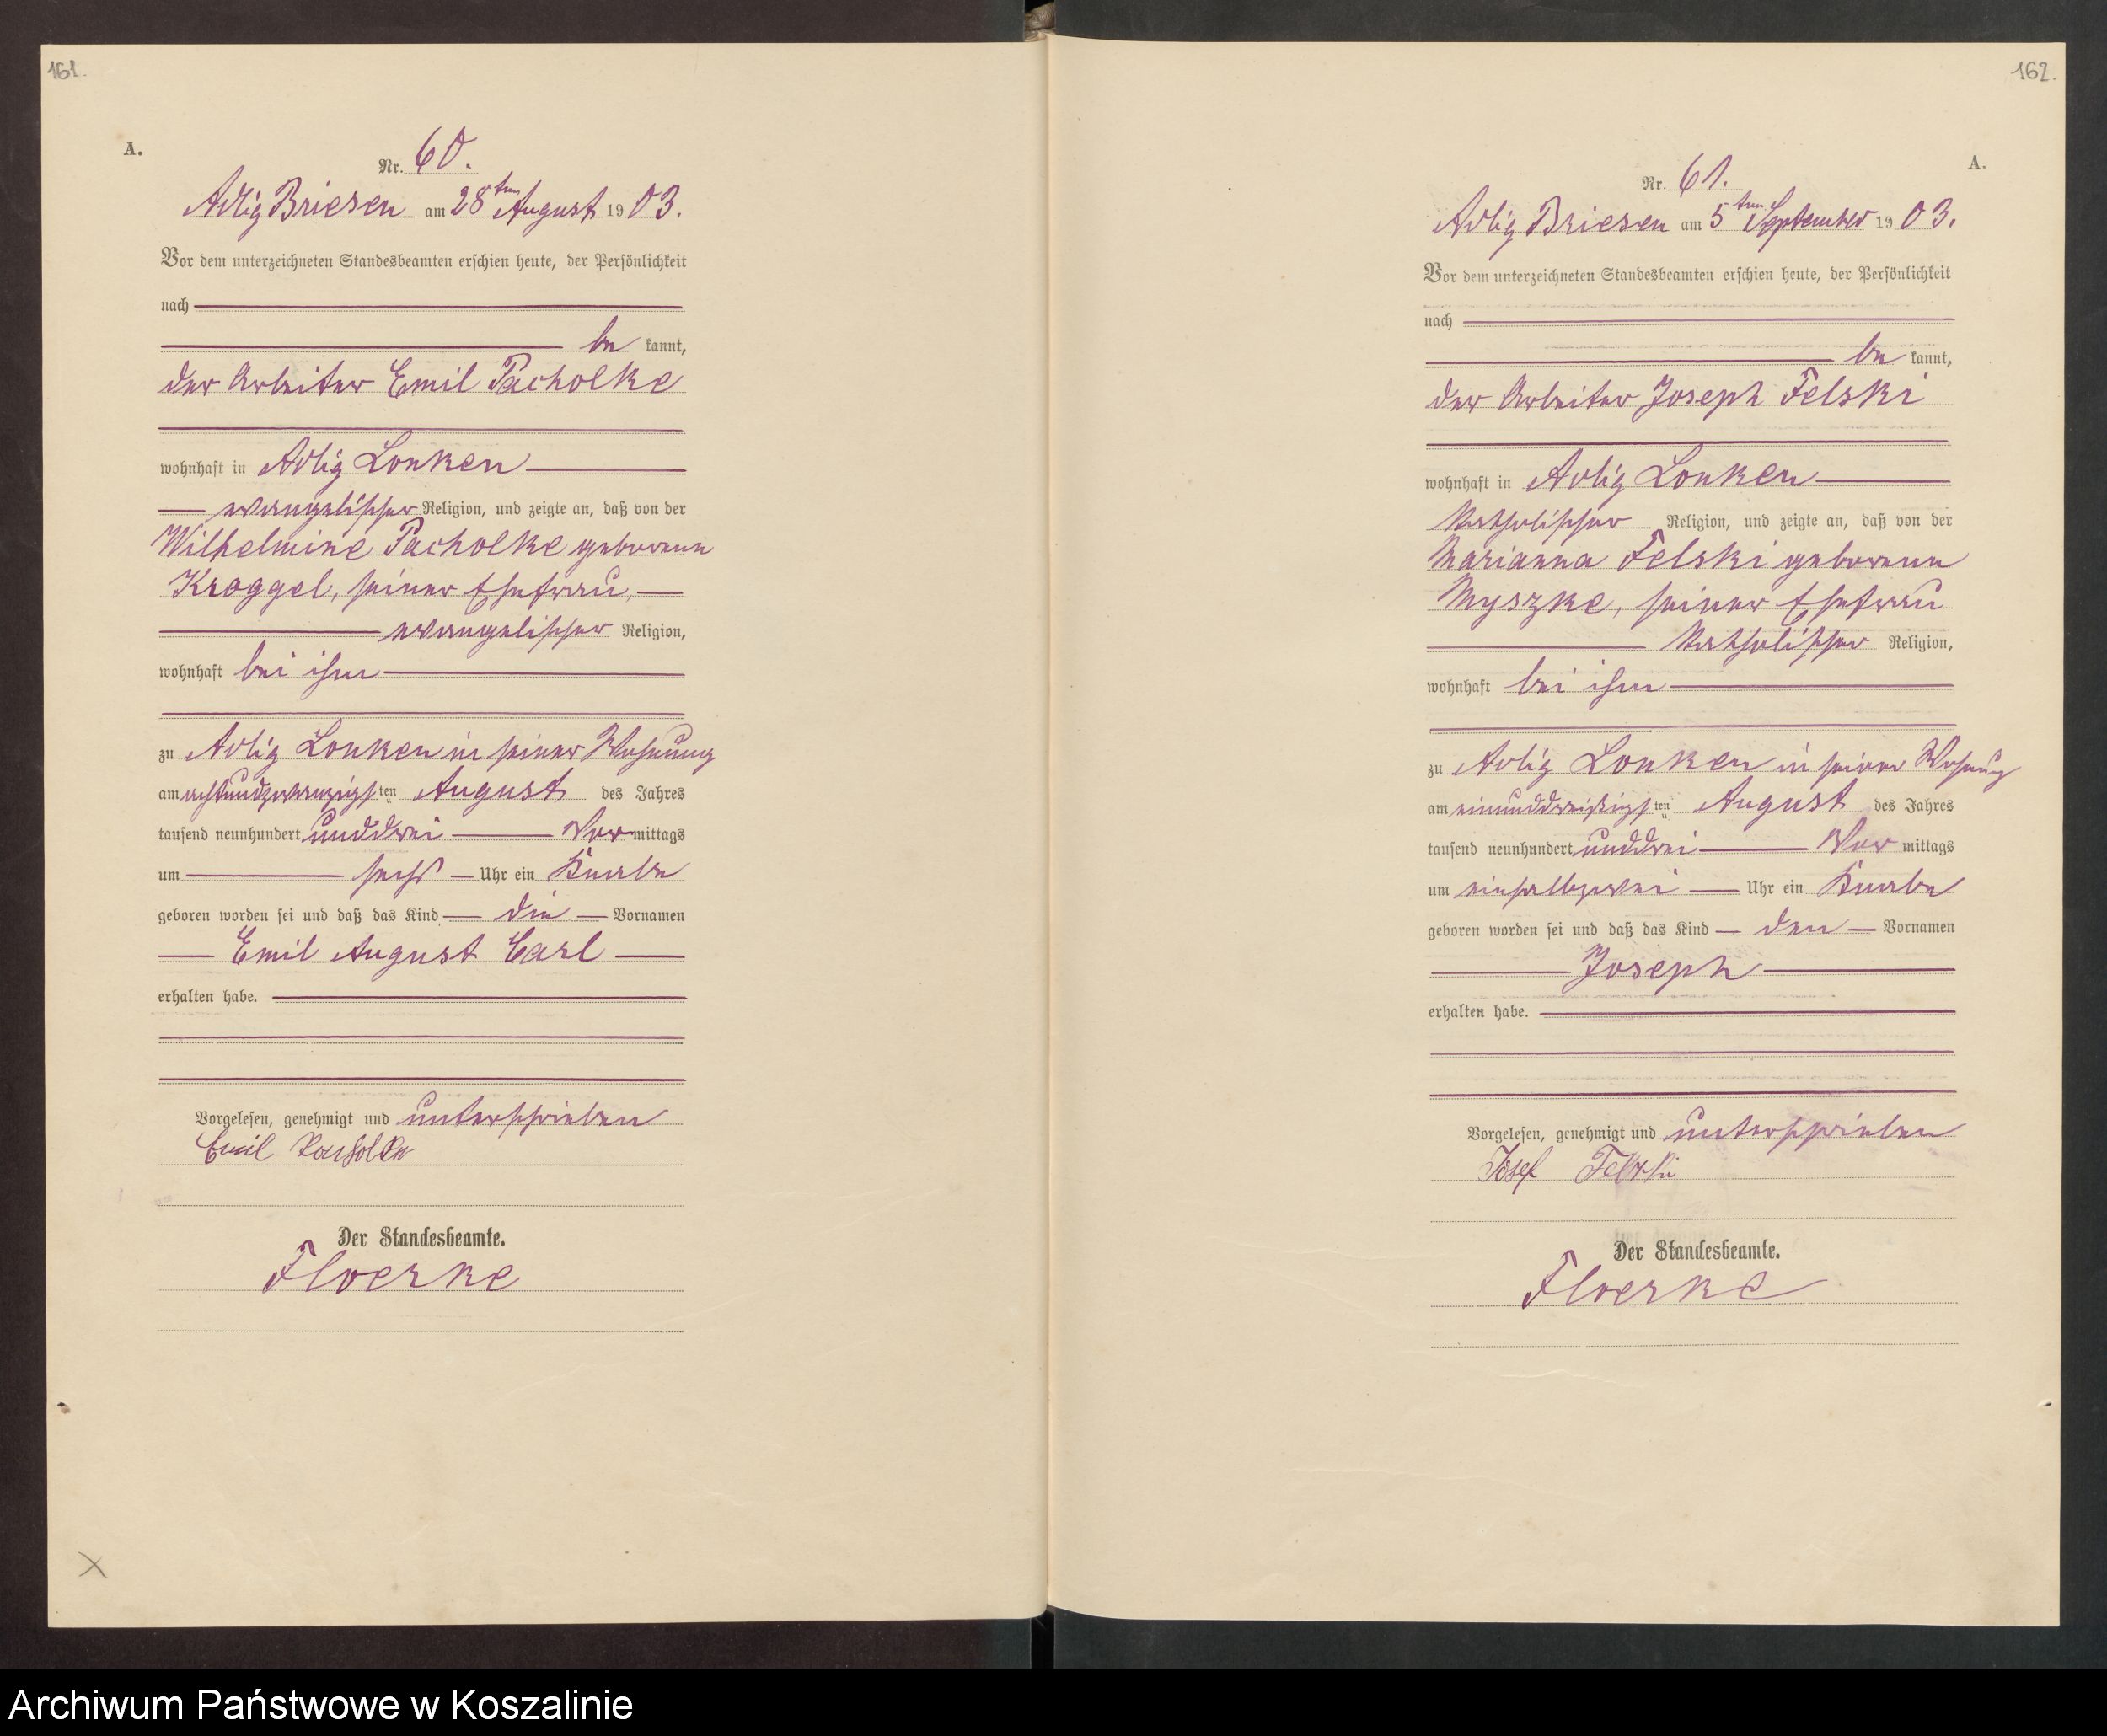 161.
A.
Nr. 60.
Adlig Briesen am 28ten August 1903.
Vor dem unterzeichneten Standesbeamten erschien heute, der Persönlichkeit
nach
be kannt,
der Arbeiter Emil Pacholke
wohnhaft in Adlig Lonken
evangelischer Religion, und zeigte an, daß von der
Wilhelmine Pacholke geborene
Kroggel, seiner Ehefrau,
evangelischer Religion,
wohnhaft bei ihm
zu Adlig Lonken in seiner Wohnung
am achtundzwanzigsten August des Jahres
tausend neunhundert unddrei Vormittags
um sechs Uhr ein Knabe
geboren worden sei und daß das Kind die Vornamen
Emil August Carl
erhalten habe.
Vorgelesen, genehmigt und unterschrieben
Emil Pacholke
Der Standesbeamte.
Floerke
162.
A.
Nr. 61.
Adlig Briesen am 5ten September 1903.
Vor dem unterzeichneten Standesbeamten erschien heute, der Persönlichkeit
nach
be kannt,
der Arbeiter Joseph Felski
wohnhaft in Adlig Lonken
katholischer Religion, und zeigte an, daß von der
Marianna Felski geborene
Myszke, seiner Ehefrau
katholischer Religion,
wohnhaft bei ihm
zu Adlig Lonken in seiner Wohnung
am einunddreißigsten August des Jahres
tausend neunhundert unddrei Vor mittags
um einhalbzwei Uhr ein Knabe
geboren worden sei und daß das Kind den Vornamen
Joseph
erhalten habe.
Vorgelesen, genehmigt und unterschrieben
Josef Felski
Der Standesbeamte.
Floerke
Archiwum Państwowe w Koszalinie